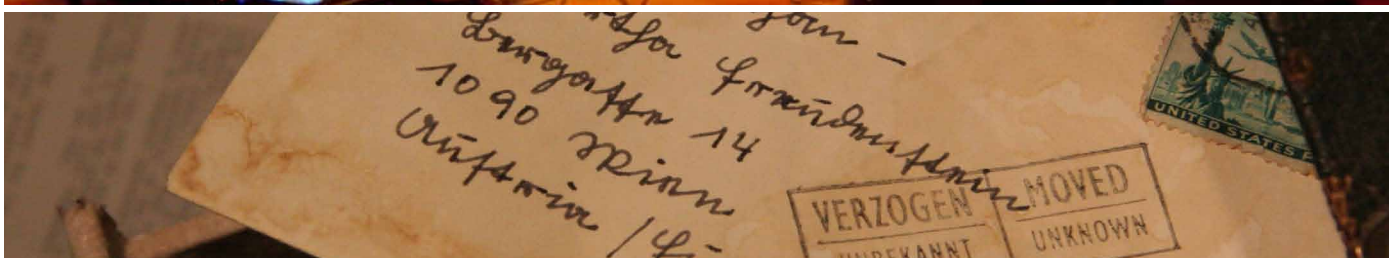 Freudenstein
Bergasse 14
1090 Wien
Austria /
VERZOGEN MOVED
UNBEKANNT UNKNOWN
UNITED STATES